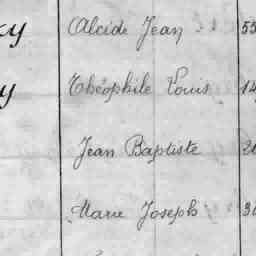 ky Alcide Jean 55
y Théophile Louis 14
Jean Baptiste
Marie Joseph